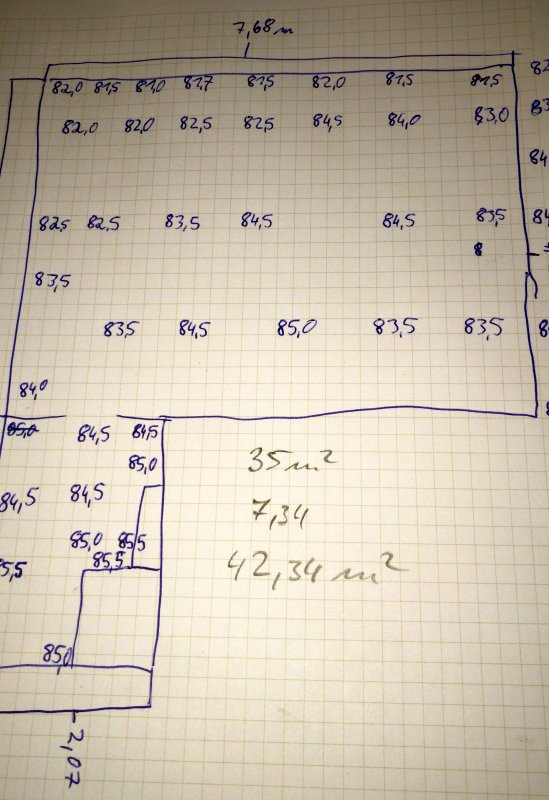 7,68m
82,0 81,5 81,0 81,7 81,5 82,0 81,5 81,5
82,0 82,0 82,5 82,5 84,5 84,0 83,0
82,5 82,5 83,5 84,5 84,5 83,5
83,5
83,5 84,5 85,0 83,5 83,5
84,0
85,0 84,5 84,5
85,0
35 m²
84,5 84,5
7,34
85,0 85,5
85,5
42,34 m²
85,0
2,07